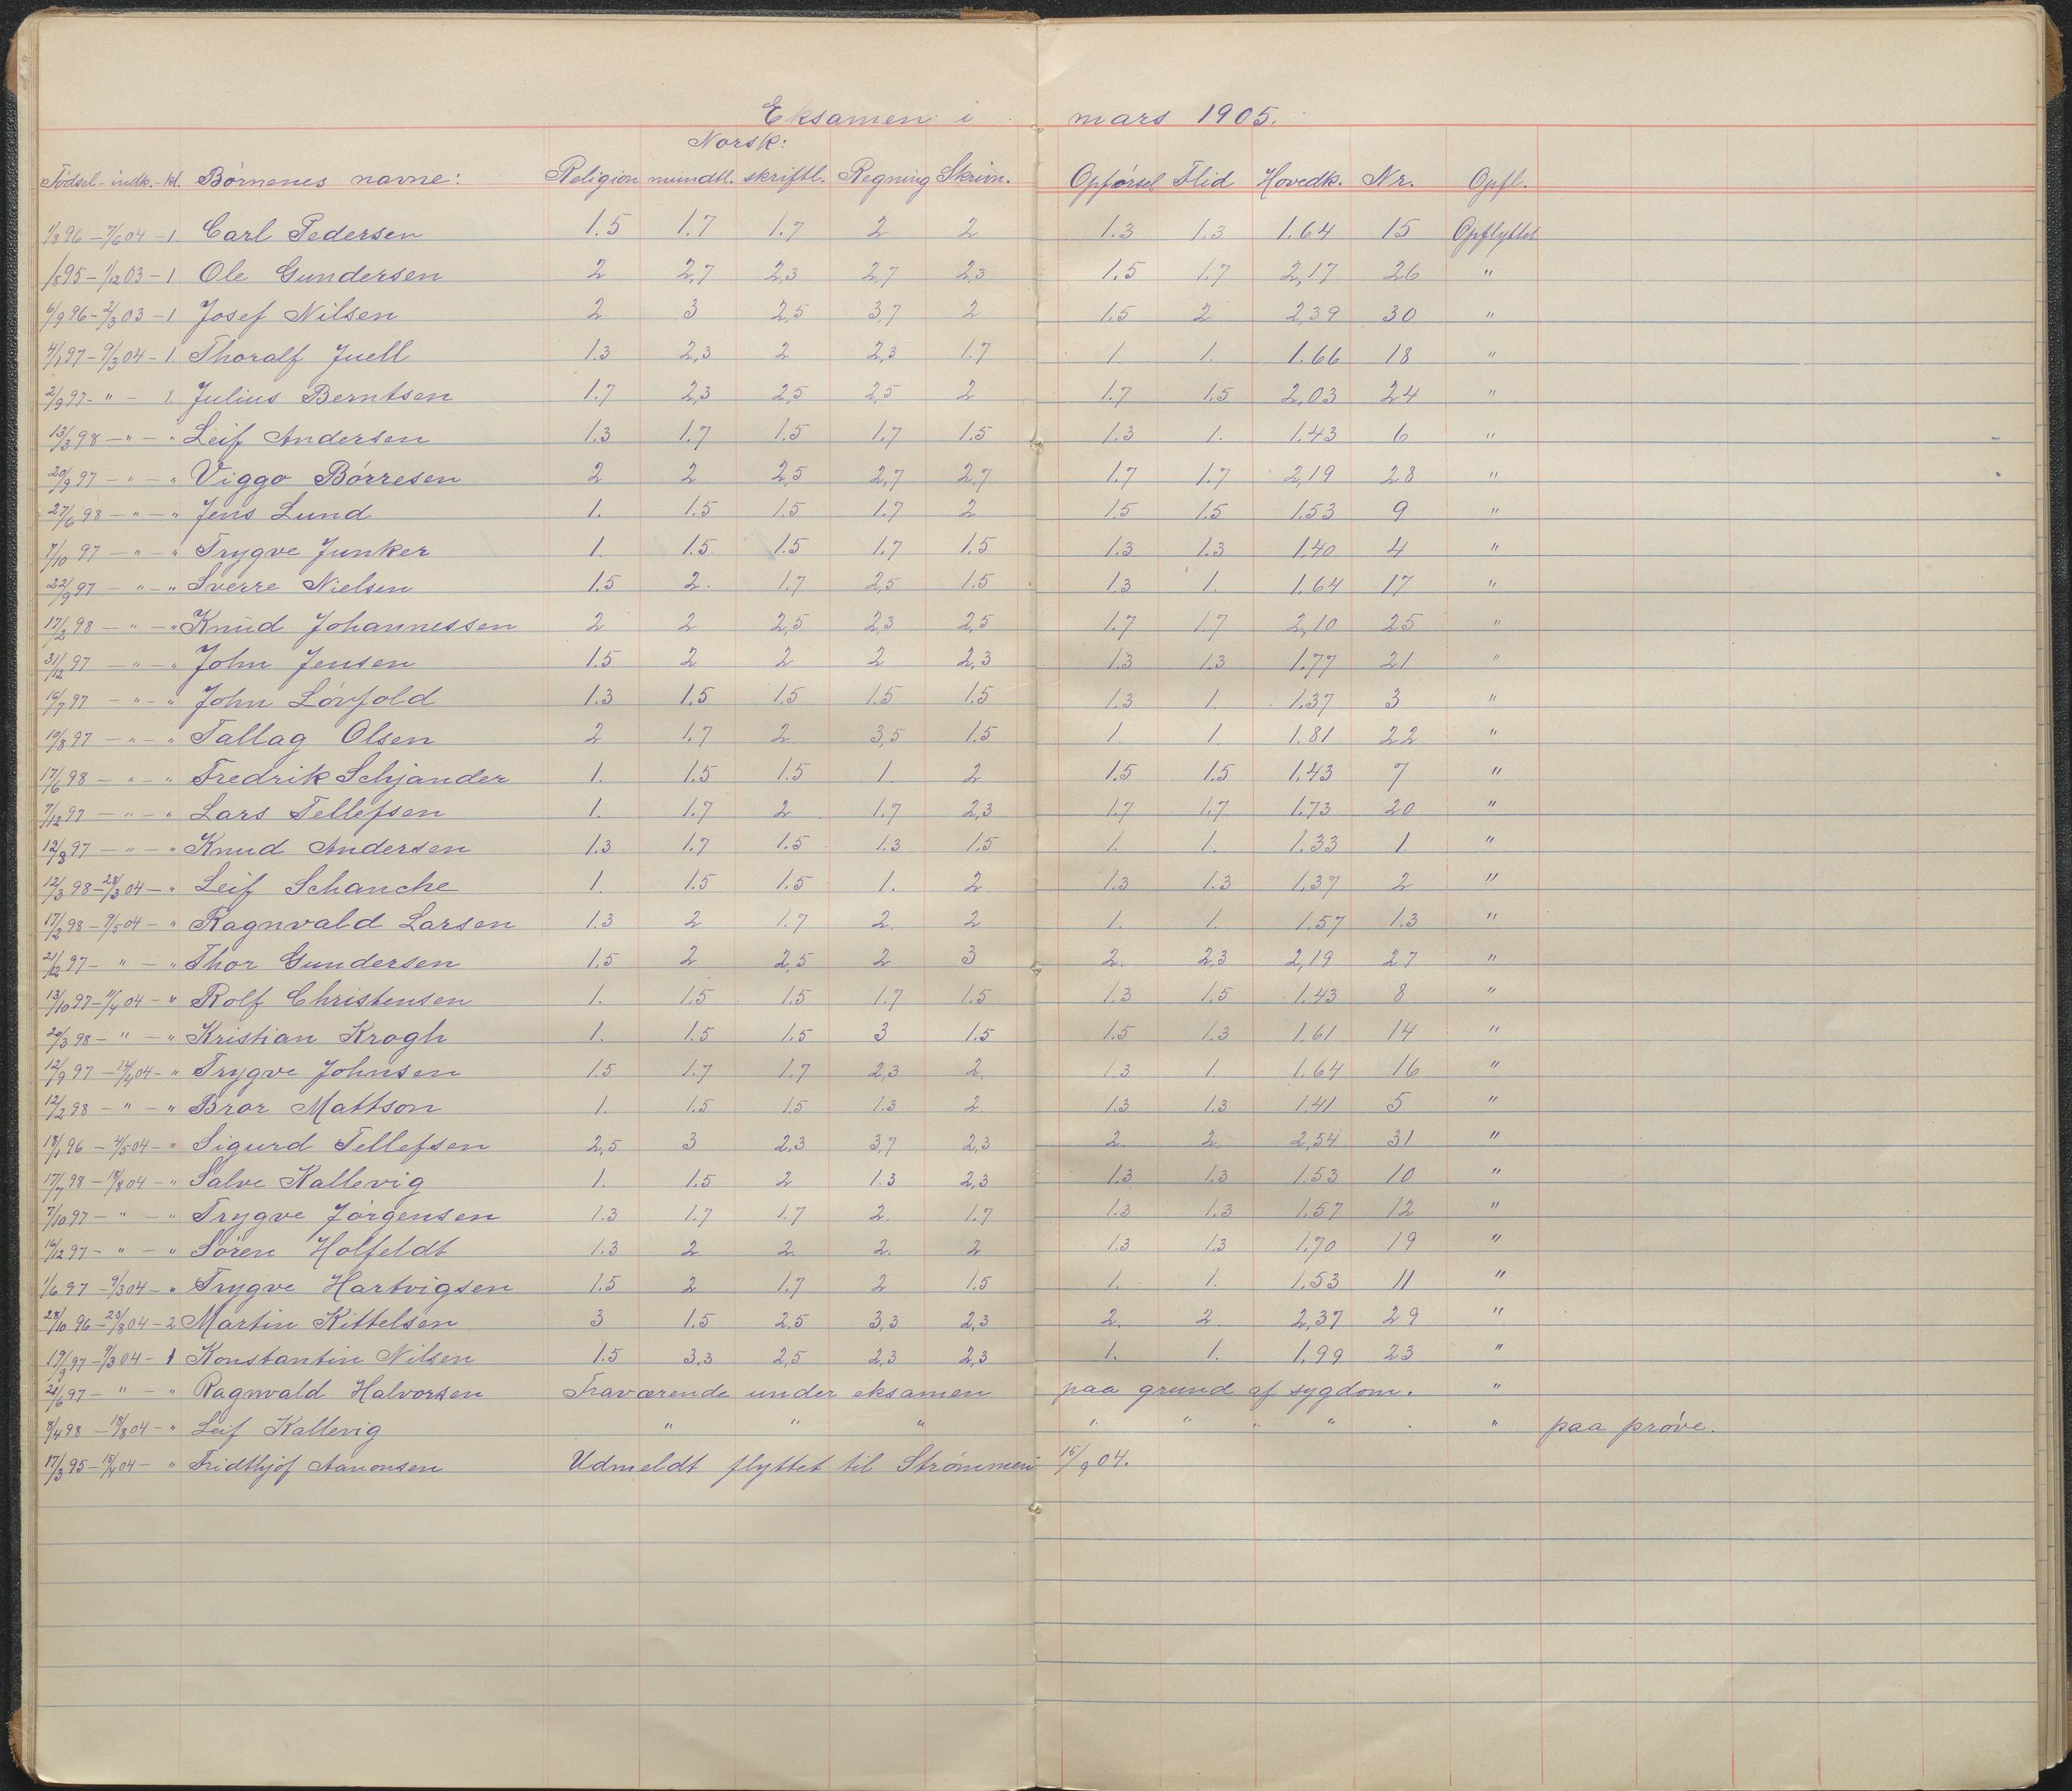 Eksamen i mars 1905.
Norsk:
Fødsel - indk. - kl. Børnenes navne: Religion mundtl. skriftl. Regning Skrivn. Opførsel Flid Hovedk. Nr. Opfl.
1/8 96 - 7/6 04 - 1 Carl Pedersen 1.5 1.7 1.7 2 2 1.3 1.3 1.64 15 Opflyttet
1/8 95 - 1/12 03 - 1 Ole Gundersen 2 2,7 2,3 2,7 2,3 1.5 1.7 2,17 26 "
6/9 96 - 2/3 03 - 1 Josef Nilsen 2 3 2,5 3,7 2 1.5 2 2,39 30 "
4/1 97 - 9/3 04 - 1. Thoralf Juell 1.3 2,3 2 2,3 1.7 1 1. 1.66 18 "
2/9 97 - " - 1. Julius Berntsen 1.7 2,3 2,5 2,5 2 1.7 1.5 2,03 24 "
13/3 98 - " - " Leif Andersen 1.3 1.7 1.5 1.7 1.5 1.3 1. 1.43 6 "
20/9 97 - " - " Viggo Børresen 2 2 2,5 2,7 2,7 1.7 1.7 2,19 28 "
27/6 98 - " - " Jens Lund 1. 1.5 1.5 1.7 2 1.5 1.5 1.53 9 "
7/10 97 - " - " Trygve Junker 1. 1.5 1.5 1.7 1.5 1.3 1.3 1.40 4 "
22/9 97 - " - " Sverre Nielsen 1.5 2. 1.7 2,5 1.5 1.3 1. 1.64 17 "
17/2 98 - " - " Knud Johannessen 2 2 2,5 2,3 2,5 1.7 1.7 2,10 25 "
31/12 97 - " - " John Jensen 1.5 2 2 2 2,3 1.3 1.3 1.77 21 "
16/7 97 - " - " John Løvfold 1.3 1.5 1.5 1.5 1.5 1.3 1. 1.37 3 "
10/8 97 - " - " Tallag Olsen 2 1.7 2 3,5 1.5 1 1. 1.81 22 "
17/6 98 - " - " Fredrik Schjander 1. 1.5 1.5 1 2 1.5 1.5 1.43 7 "
7/12 97 - " - " Lars Tellefsen 1. 1.7 2 1.7 2,3 1.7 1.7 1.73 20 "
12/8 97 - " - " Knud Andersen 1.3 1.7 1.5 1.3 1.5 1. 1. 1.33 1. "
12/3 98 - 28/3 04 - " Leif Schanche 1. 1.5 1.5 1. 2 1.3 1.3 1.37 2 "
17/2 98 - 9/5 04 - " Ragnvald Larsen 1.3 2 1.7 2. 2 1. 1. 1.57 13 "
21/12 97 - " - " Thor Gundersen 1.5 2 2,5 2 3 2. 2,3 2,19 27 "
13/10 97 - 11/4 04 - " Rolf Christensen 1. 1.5 1.5 1.7 1.5 1.3 1.5 1.43 8 "
20/3 98 - " - " Kristian Krogh 1. 1.5 1.5 3 1.5 1.5 1.3 1.61 14 "
12/9 97 - 14/4 04 - " Trygve Johnsen 1.5 1.7 1.7 2,3 2. 1.3 1. 1.64 16 "
12/2 98 - " - " Bror Mattson 1. 1.5 1.5 1.3 2. 1.3 1.3 1.41 5 "
18/1 96 - 4/5 04 - " Sigurd Tellefsen 2,5 3 2,3 3,7 2,3 2. 2. 2,54 31 "
17/7 98 - 18/8 04 - " Salve Kallevig 1. 1.5 2 1.3 2,3 1.3 1.3 1.53 10 "
7/10 97 - " - " Trygve Jørgensen 1.3 1.7 1.7 2. 1.7 1.3 1.3 1.57 12 "
16/12 97 - " - " Søren Holfeldt 1.3 2 2 2. 2 1.3 1.3 1.70 19 "
1/6 97 - 9/3 04 - " Trygve Hartvigsen 1.5 2 1.7 2 1.5 1. 1. 1.53 11 "
28/10 96 - 23/8 04 - 2 Martin Kittelsen 3 1.5 2,5 3,3 2,3 2. 2. 2,37 29 "
19/9 97 - 9/3 04 - 1 Konstantin Nilsen 1.5 3,3 2,5 2,3 2,3 1. 1. 1.99 23 "
21/6 97 - " - " Ragnvald Halvorsen Fraværende under eksamen paa grund af sygdom. "
8/4 98 - 18/8 04 - " Leif Kallevig " " " " " " " . " paa prøve.
17/3 95 - 15/4 04 - " Fridthjof Aanonsen Udmeldt flyttet til Strømmen 15/9 04.